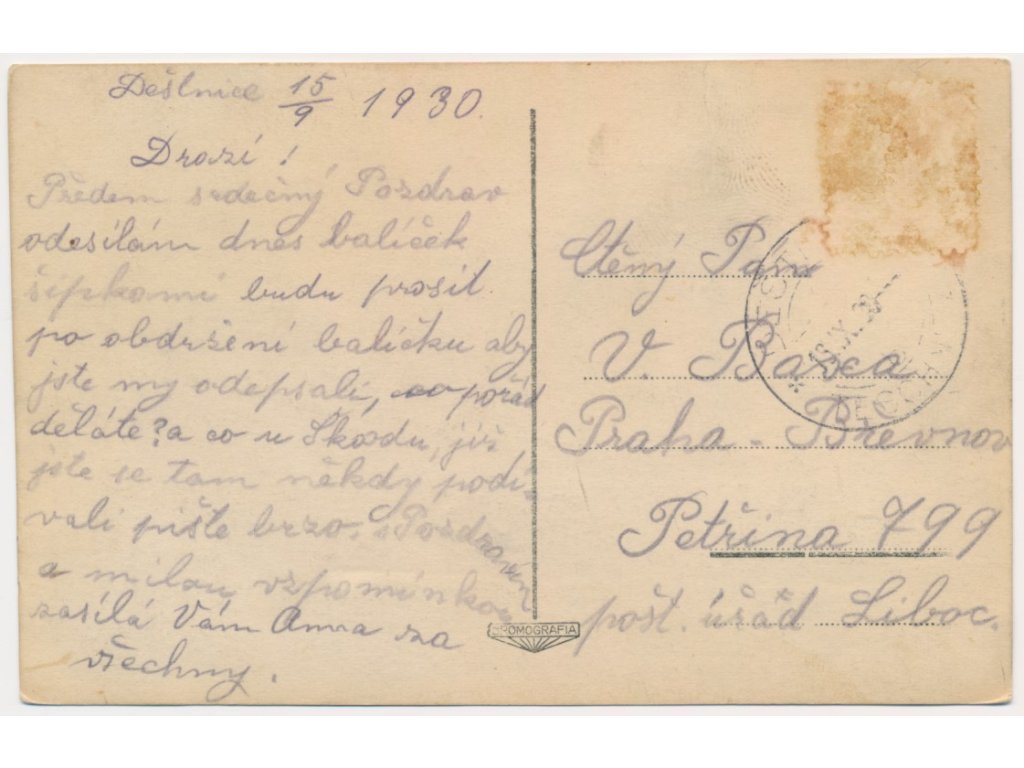 Dešlnice 15/9 1930.
Drazí!
Předem srdečný Pozdrav
odesílám dnes balíček
šipkami budu prosit
po obdržení balíčku aby
jste my odepsali, co pořád
děláte? a co u Škodu, již
jste se tam někdy podí-
vali pište brzo. S Pozdravem
a milou vzpomínkou
zasílá Vám Anna za
všechny.
BROMOGRAFIA
Ctěný Pan
V. Basca
Praha - Břevnov
Petřina 799
pošt. úřad Liboc.